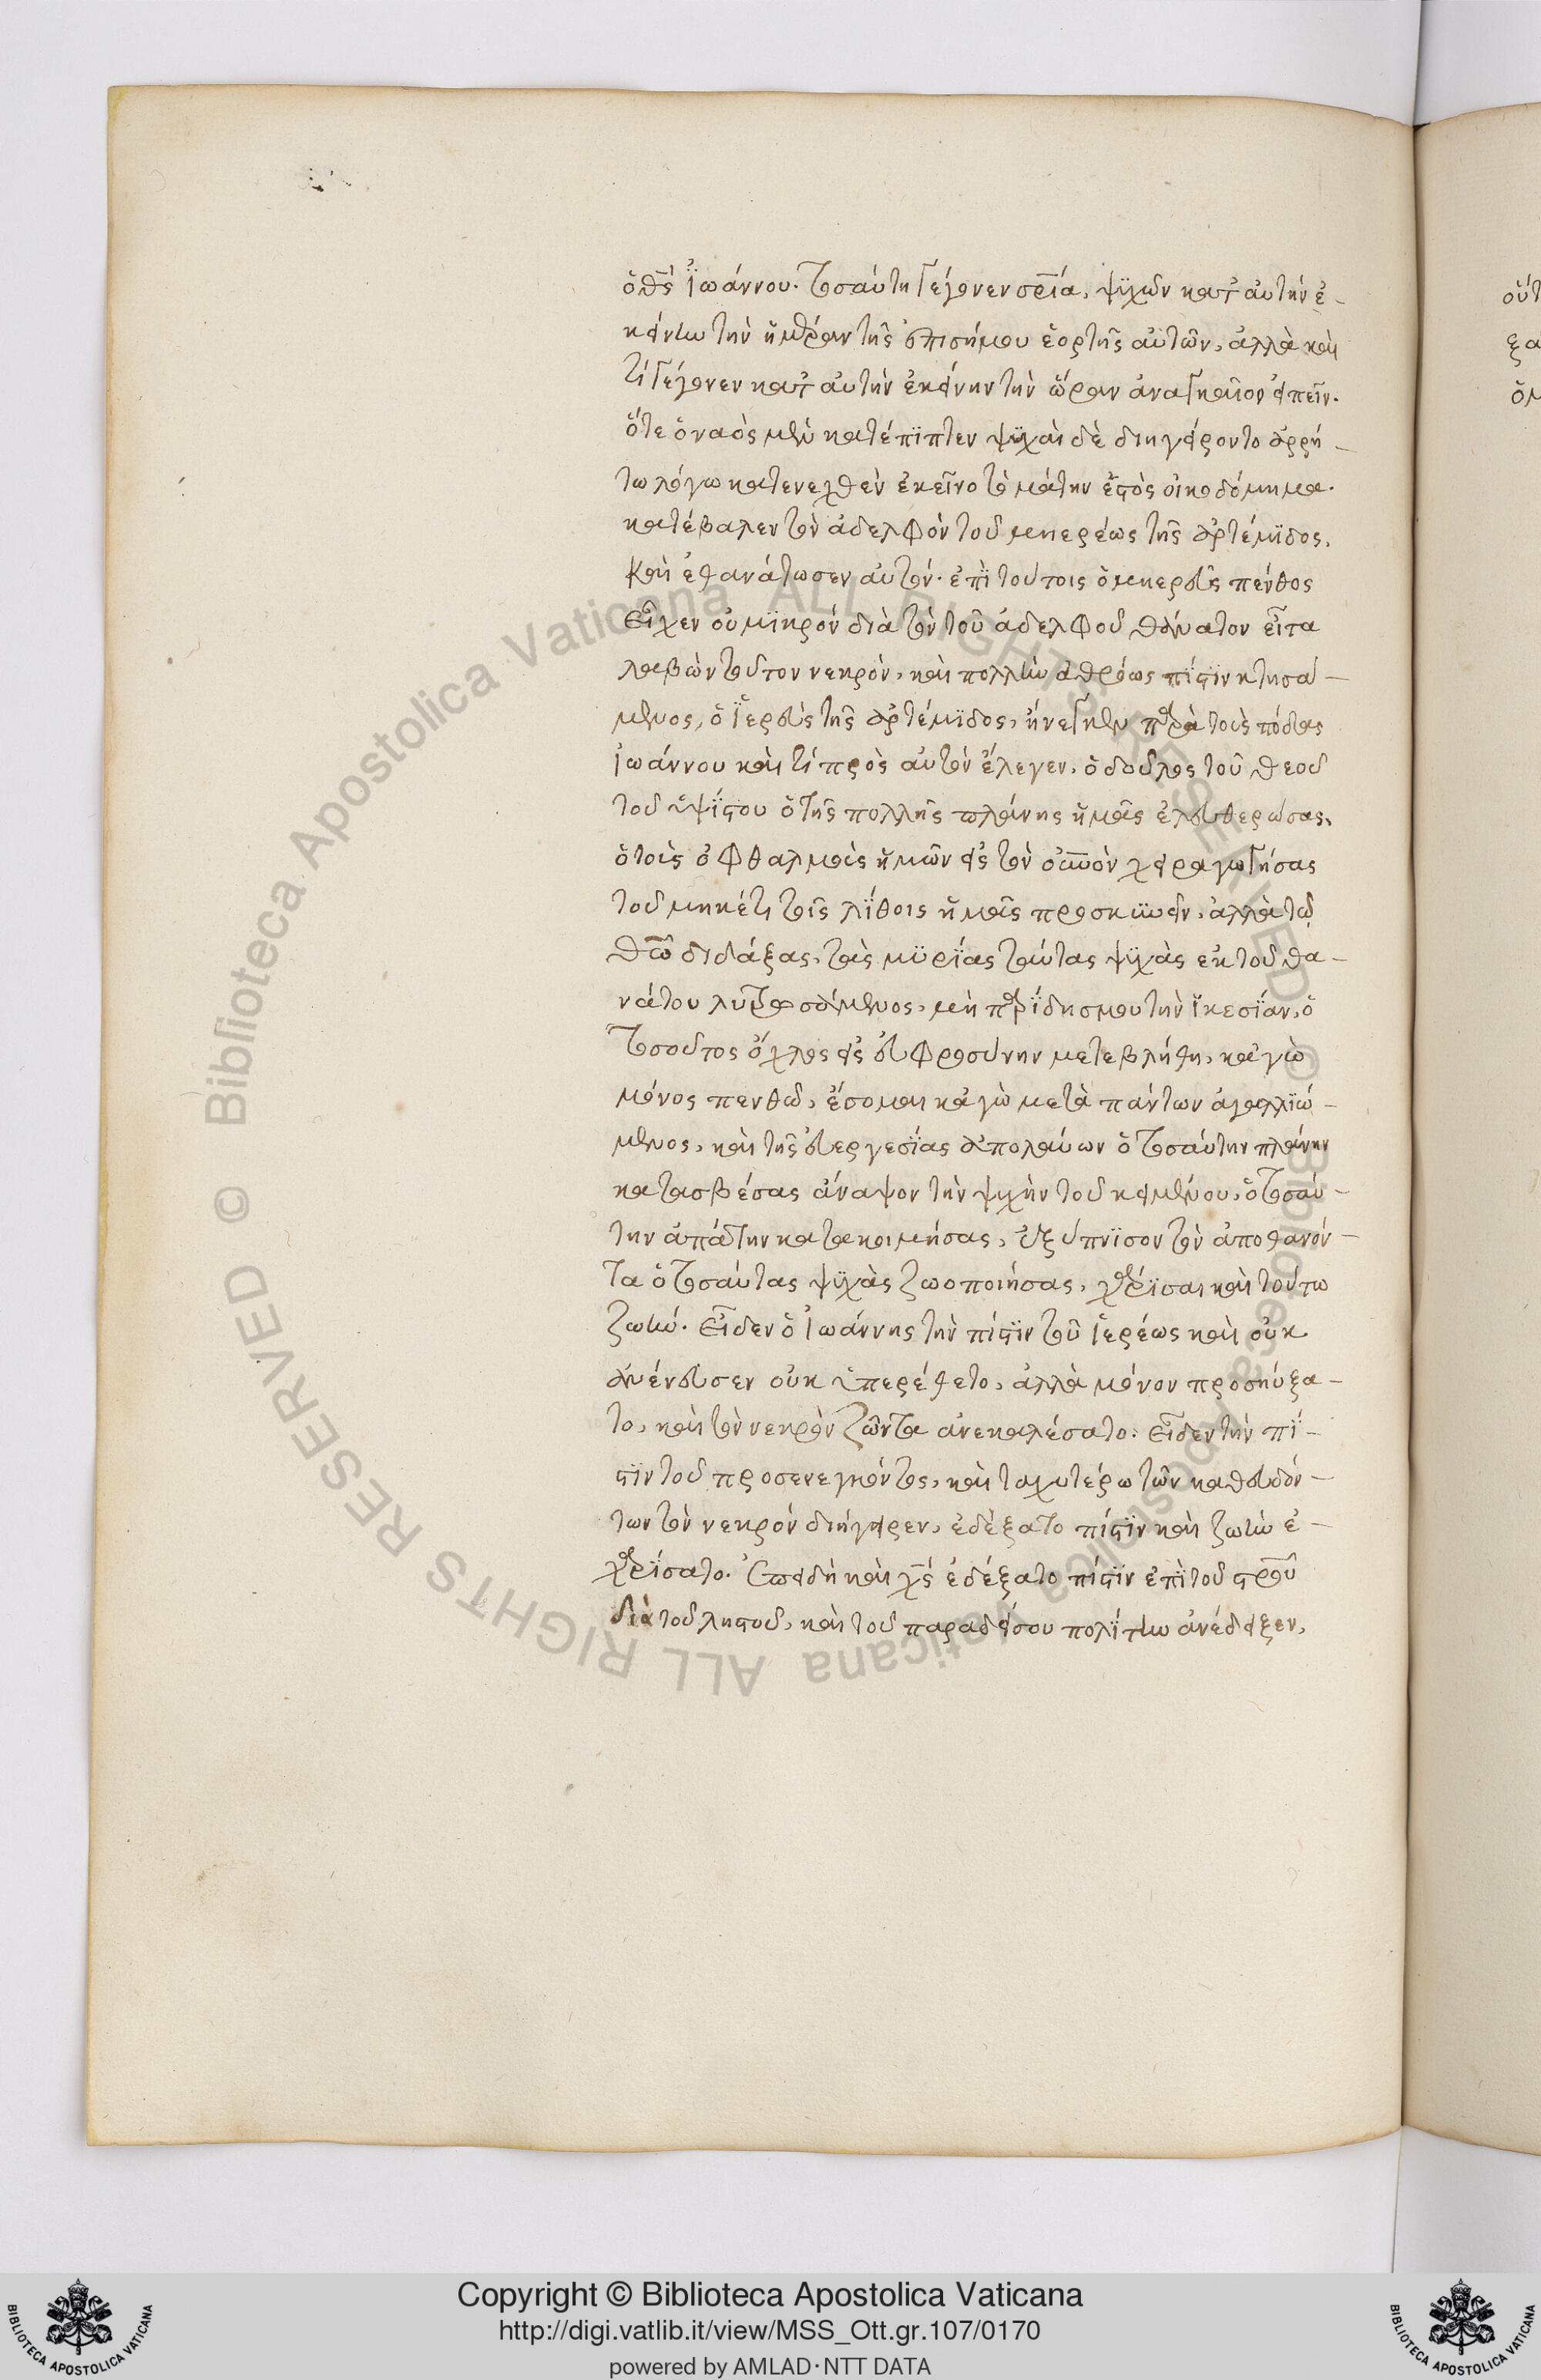 ὁ θς Ἰωάννου. τοσαύτη γέγονεν σρία, ψυχῶν κατ αὐτὴν ἐ-
κείνην τὴν ἡμέραν τῆς ἐπισήμου ἑορτῆς αὐτῶν, ἀλλὰ καὶ
τί γέγονεν κατ αὐτὴν ἐκείνην τὴν ὥραν ἀναγκαῖον εἰπεῖν.
ὅτε ὁ ναὸς μὲν κατέπϊπτεν ψϋχαὶ δὲ διηγείροντο ἀρρή-
τω λόγω κατενεχθὲν ἐκεῖνο τὸ μάτην ἑστὸς οἰκοδόμημα.
κατέβαλεν τὸν ἀδελφὸν τοῦ μιερέως τῆς ἀρτέμϊδος,
καὶ ἐθανάτωσεν αὐτόν. ἐπὶ τούτοις ὁ μιερεὺς πένθος
εἶχεν οὐ μϊκρὸν διὰ τὸν τοῦ ἀδελφοῦ θάνατον εἶτα
λαβὼν τοῦτον νεκρὸν, καὶ πολλὴν ἀθρόως πίστϊν κτησά-
μενος, ὁ ἱερεὺς τῆς ἀρτέμϊδος, ἤνεγκεν παρὰ τοὺς πόδας
Ἰωάννου καὶ τί πρὸς αὐτὸν ἔλεγεν, ὁ δοῦλος τοῦ θεοῦ
τοῦ ὑψίστου ὁ τῆς πολλῆς πλάνης ἡμᾶς ἐλευθερώσας,
ὁ τοὺς ὀφθαλμοὺς ἡμῶν εἰς τὸν οὐνὸν χειραγωγήσας
τοῦ μηκέτι τοῖς λίθοις ἡμᾶς προσκυνεῖν, ἀλλὰ τῷ
θῶ διδάξας, τὰς μϋρϊάς ταύτας ψϋχὰς ἐκ τοῦ θα-
νάτου λυτρωσάμενος, μὴ παρίδης μου τὴν ἱκεσϊαν, ὁ
τοσοῦτος ὄχλος εἰς εὐφροσύνην μετεβλήθη, κἀγὼ
μόνος πενθῶ, ἔσομαι κἀγὼ μετὰ πάντων ἀγαλλϊώ-
μενος, καὶ τῆς εὐεργεσίας ἀπολαύων ὁ τοσαύτην πλάνην
κατασβέσας ἄναψον τὴν ψυχὴν τοῦ κειμένου, ὁ τοσαύ-
την ἀπάτην κατακοιμήσας, ἐξύπνϊσον τὸν ἀποθανόν-
τα ὁ τοσαύτας ψϋχὰς ζωοποιήσας, χάρϊσαι καὶ τούτω
ζωήν. εἶδεν ὁ Ἰωάννης τὴν πίστϊν τοῦ ἱερέως καὶ οὐκ
ἀνένευσεν οὐκ ὑπερέθετο, ἀλλὰ μόνον προσηύξα-
το, καὶ τὸν νεκρὸν ζῶντα ἀνεκαλέσατο. εἶδεν τὴν πί-
στϊν τοῦ προσενεγκόντος, καὶ ταχυτέρω τῶν καθευδόν-
των τὸν νεκρὸν διήγειρεν, ἐδέξατο πίστϊν καὶ ζωὴν ἐ-
χαρίσατο. ἐπειδὴ καὶ χς ἐδέξατο πίστϊν ἐπὶ τοῦ στροῦ
διὰ τοῦ ληστοῦ, καὶ τοῦ παραδείσου πολίτην ἀνέδειξεν,
οὕτ
ξα
ὁμ
© Biblioteca Apostolica Vaticana ALL RIGHTS RESERVED © Biblioteca Apostolica Vaticana ALL RIGHTS RESERVED
Copyright © Biblioteca Apostolica Vaticana
http://digi.vatlib.it/view/MSS_Ott.gr.107/0170
powered by AMLAD·NTT DATA
BIBLIOTECA APOSTOLICA VATICANA
BIBLIOTECA APOSTOLICA VATICANA